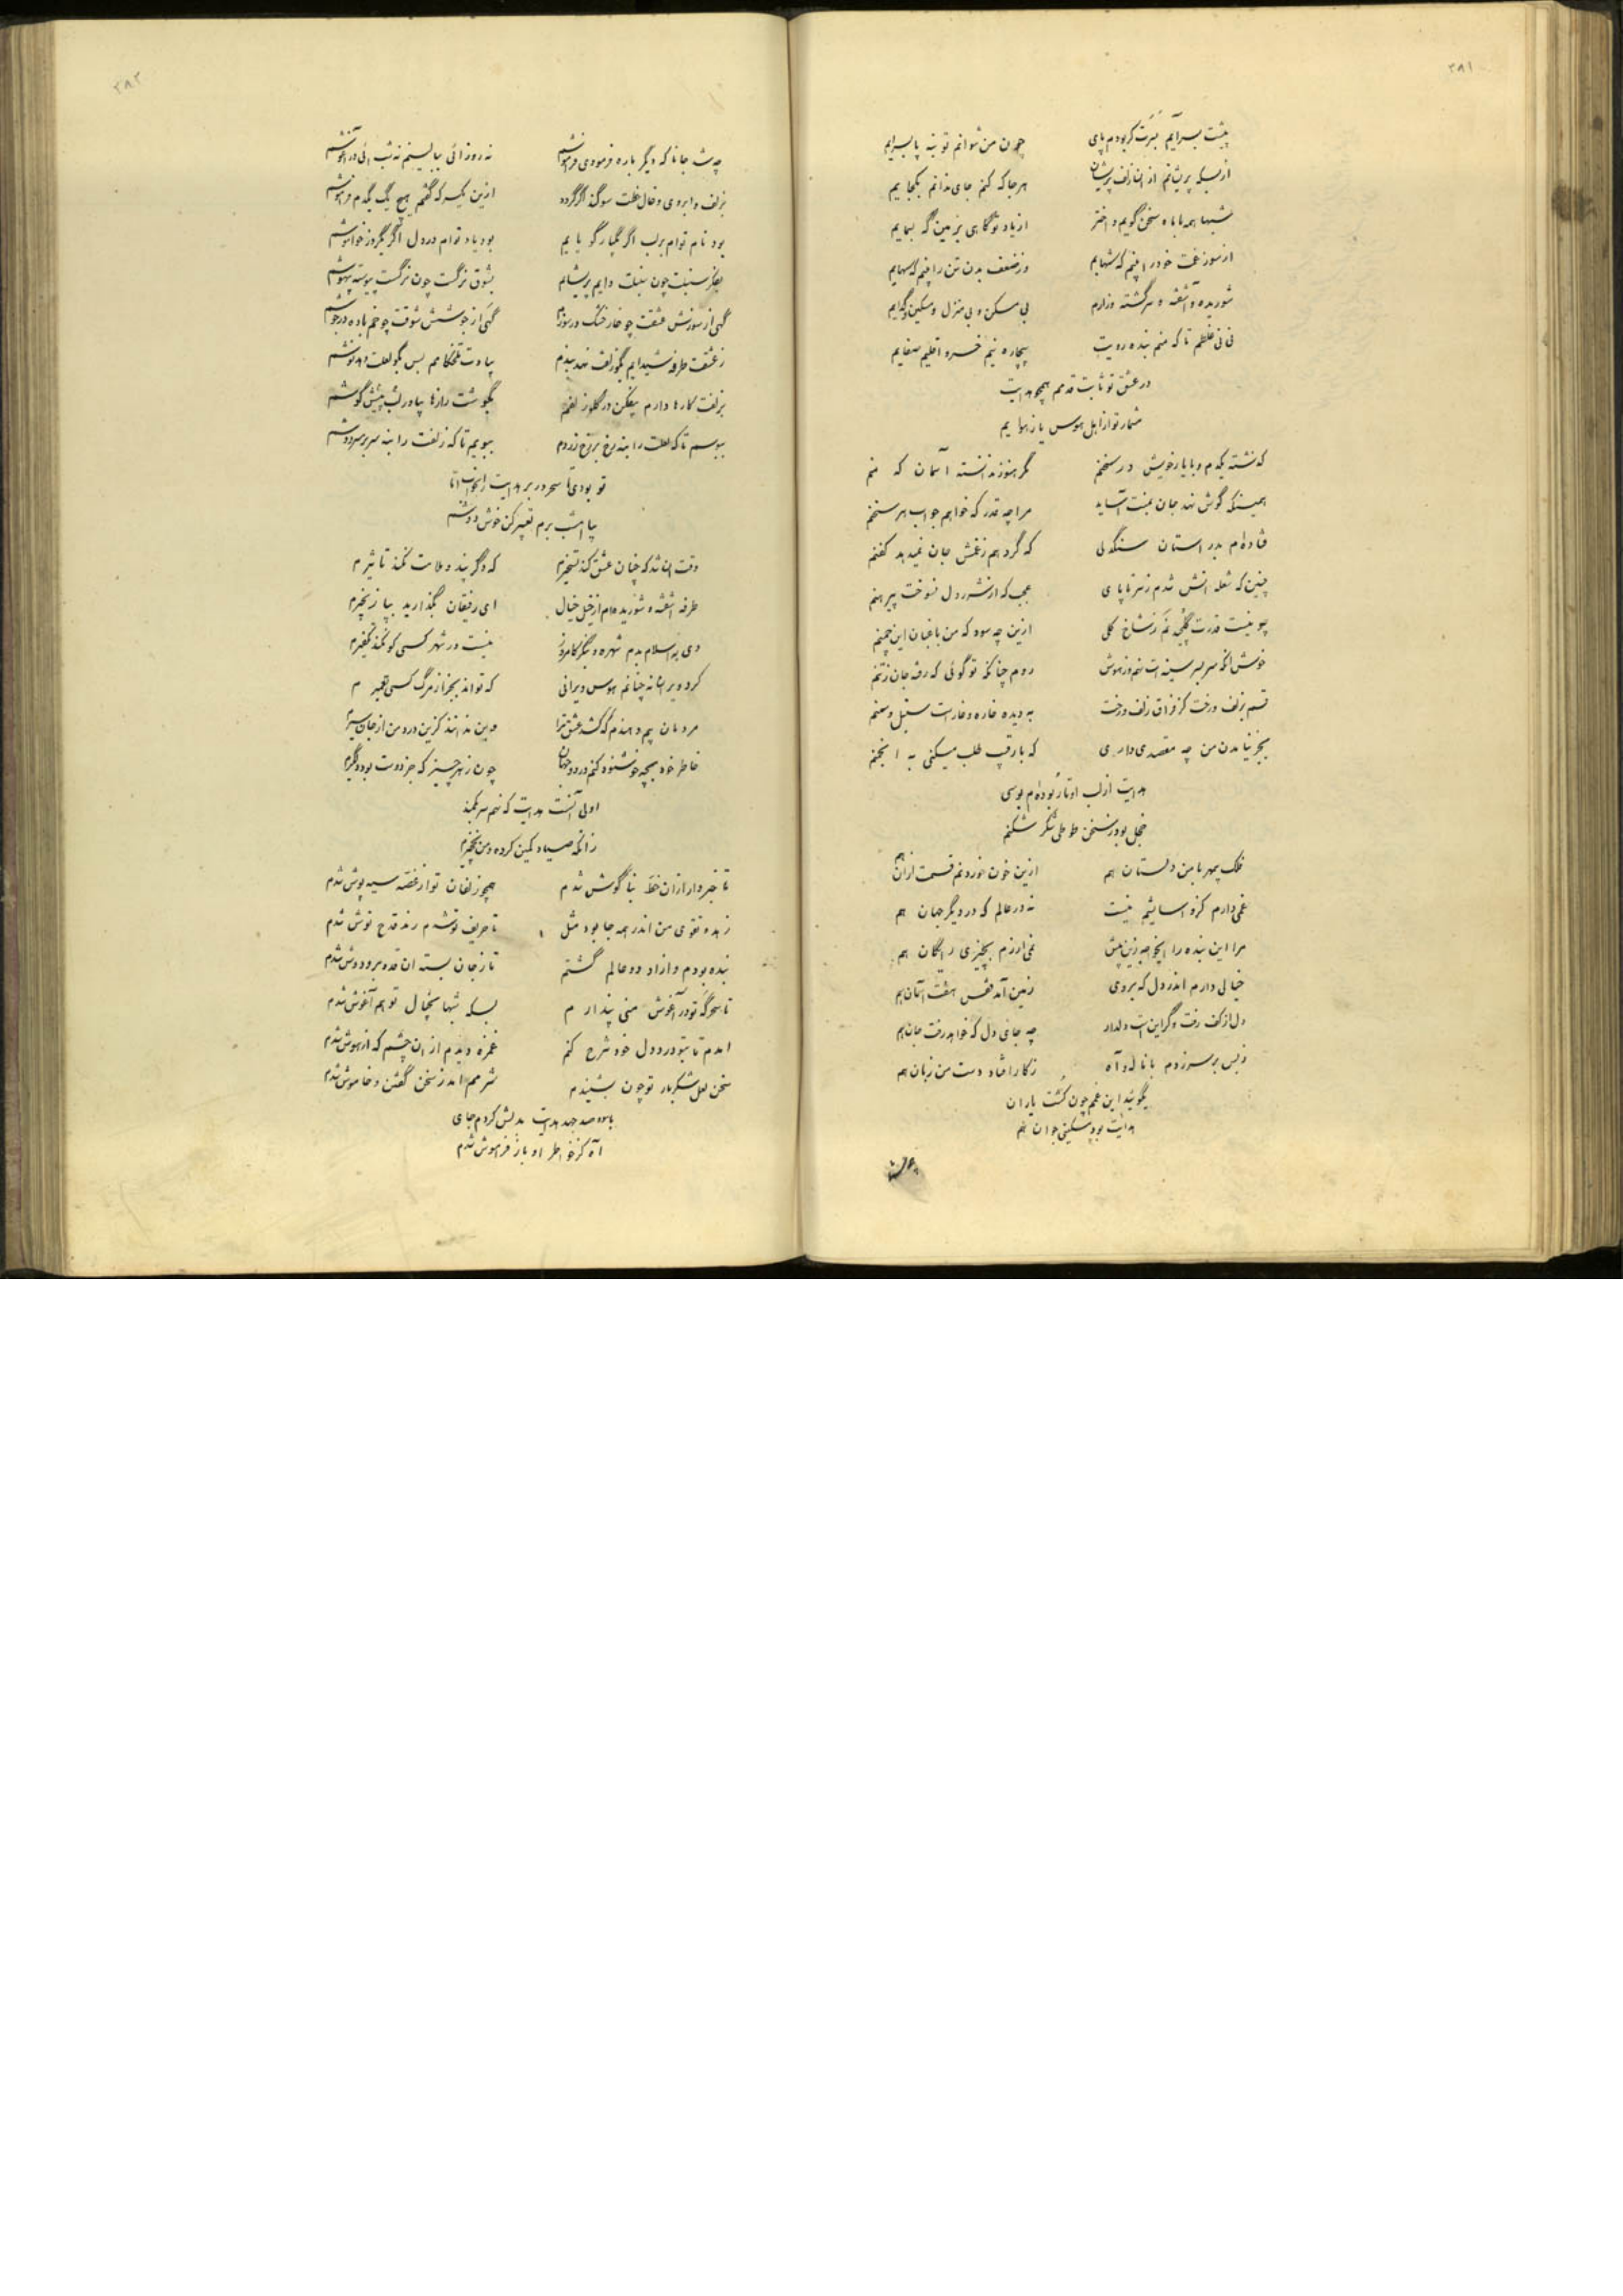 ۳۸۱
پیشت بسر آیم بسرت گر بودم پای چون من نتوانم تو بنه پا بسرایم
از بسکه پریشانم از ان زلف پریشان هر جا که کنم جای ندانم بکجایم
شبها همه با ماه سخن گویم و اختر از یاد تو گاهی بزمین گه بسمایم
از سوز غمت خود را بینم که شهابم وز ضعف بدن تن را بینم که سهایم
شوریده و آشفته و سرگشته و زارم بی مسکن و بی منزل و مسکین و گدایم
نی نی غلطم تا که منم بنده رویت بیچاره نیم خسرو اقلیم صفایم
در عشق تو ثابت قدمم همچو هدایت
مشمار تو از اهل هوس یا ز هوایم
که نشته یکدم و با یار خویش در سخنم مگر هنوز ندانسته آسمان که منم
همینکه گوش نهد جان بمنت آساید مرا چه قدر که خواهم جواب هر سخنم
فتاده‌ام بدر استان سنگدلی که گر دهم ز غمش جان نمیدهد کفنم
چنین که شعله آتش شدم ز سر تا پای عجب که از شرر دل نسوخت پیرهنم
چو نیست قدرت گلچینیم ز شاخ گلی ازین چه سود که من باغبان این چمنم
خوش آنکه سر بسر سینه‌ات نهم وز هوش روم چنانکه تو گوئی که رفته جان ز تنم
قسم بزلف و رخت کز فراق زلف و رخت به دیده خاره و خار است سنبل و سمنم
بجز نیامدن من چه مقصدی داری که با رقیب طلب میکنی به انجمنم
هدایت از لب او تا ربوده‌ام بوسی
خجل بود ز سخن طوطی شکر شکنم
فلک بیمهر با من دلستان هم ازین خون خوردنم قسمت از ان هم
غمی دارم کزو آسایشم نیست نه در عالم که در دیگر جهان هم
مرا این بنده را ایخواجه زین پیش نمی ارزم بچیزی رایگان هم
خیالی دارم اندر دل که بر وی زمین آمد قفس هفت آسمان هم
دل از کف رفت و گر این است دلدار چه جای دل که خواهد رفت جان هم
ز بس بر سر زدم با ناله و آه ز کار افتاد دست من زبان هم
بگوئید این غمم چون کشت یاران
هدایت بود مسکینی جوان هم
۳۸۲
چه شد جانا که دیگر باره فرمودی فراموشم نه روز آئی ببالینم نه شب آئی در آغوشم
بزلف و ابروی و خال و خطت سوگند اگر گردد ازین یکسر که گفتم هیچ یک یکدم فراموشم
بود نام توام بر لب اگر یکبار گویایم بود یاد توام در دل اگر یکروز خاموشم
بفکر سنبلت چون سنبلت دایم پریشانم بشوق نرگست چون نرگست پیوسته بیهوشم
گهی از سوزش عشقت چو خار خشک در سوزم گهی از جوشش شوقت چو خم باده در جوشم
ز عشقت طرفه شیدایم بگو زلفت نهد بندم بیادت تلخکامم بس بگو لعلت دهد نوشم
بزلفت کارها دارم بیفکن در گلو زلفم بگوشت رازها بیاور لب پیش گوشم
ببوسم تا که لعلت را بنه رخ بر رخ زردم ببویم تا که زلفت را بنه سر بر سر دوشم
تو بودی تا سحر در بر هدایت را بخواب اما
بیا امشب برم تعبیر کن خوش خواب دوشم
وقت ان شد که چنان عشق کند تسخیرم که دگر پند و ملامت نکند تاثیرم
طرفه آشفته و شوریده‌ام از خیل خیال ای رفیقان بگذارید بپا زنجیرم
دی به اسلام بدم شهره و بنگر کامروز نیست در شهر کسی کو نکند تکفیرم
کرد ویرانه چنانم هوس ویرانی که نتواند بجز از مرگ کسی تعمیرم
مردمان بیم دهندم که کشد عشق ترا وین ندانند کزین درد من از جان سیرم
خاطر خود بچه خوشنود کنم در دو جهان چون ز هر چیز که جز دوست بود دلگیرم
اولی آنست هدایت که نهم سر بکمند
زانکه صیاد کمین کرده و من نخجیرم
تا خبردار از ان خط بناگوش شدم همچو زلفان تو از غصه سیه پوش شدم
زهد و تقوی من اندر همه جا بود مثل تا حریف تو شدم رند قدح نوش شدم
بنده بودم و آزاد دو عالم گشتم تا ز جان بسته ان قد و بر و دوش شدم
تا سحرگه تو در آغوش منی پندارم بسکه شبها بخیال تو هم آغوش شدم
آمدم تا بتو درد دل خود شرح کنم غمزه دیدم از ان چشم که از هوش شدم
سخن لعل شکربار تو چون بشنیدم شرمم آمد ز سخن گفتن و خاموش شدم
با دو صد جهد هدایت بدلش کردم جای
آه کز خاطر او باز فراموش شدم